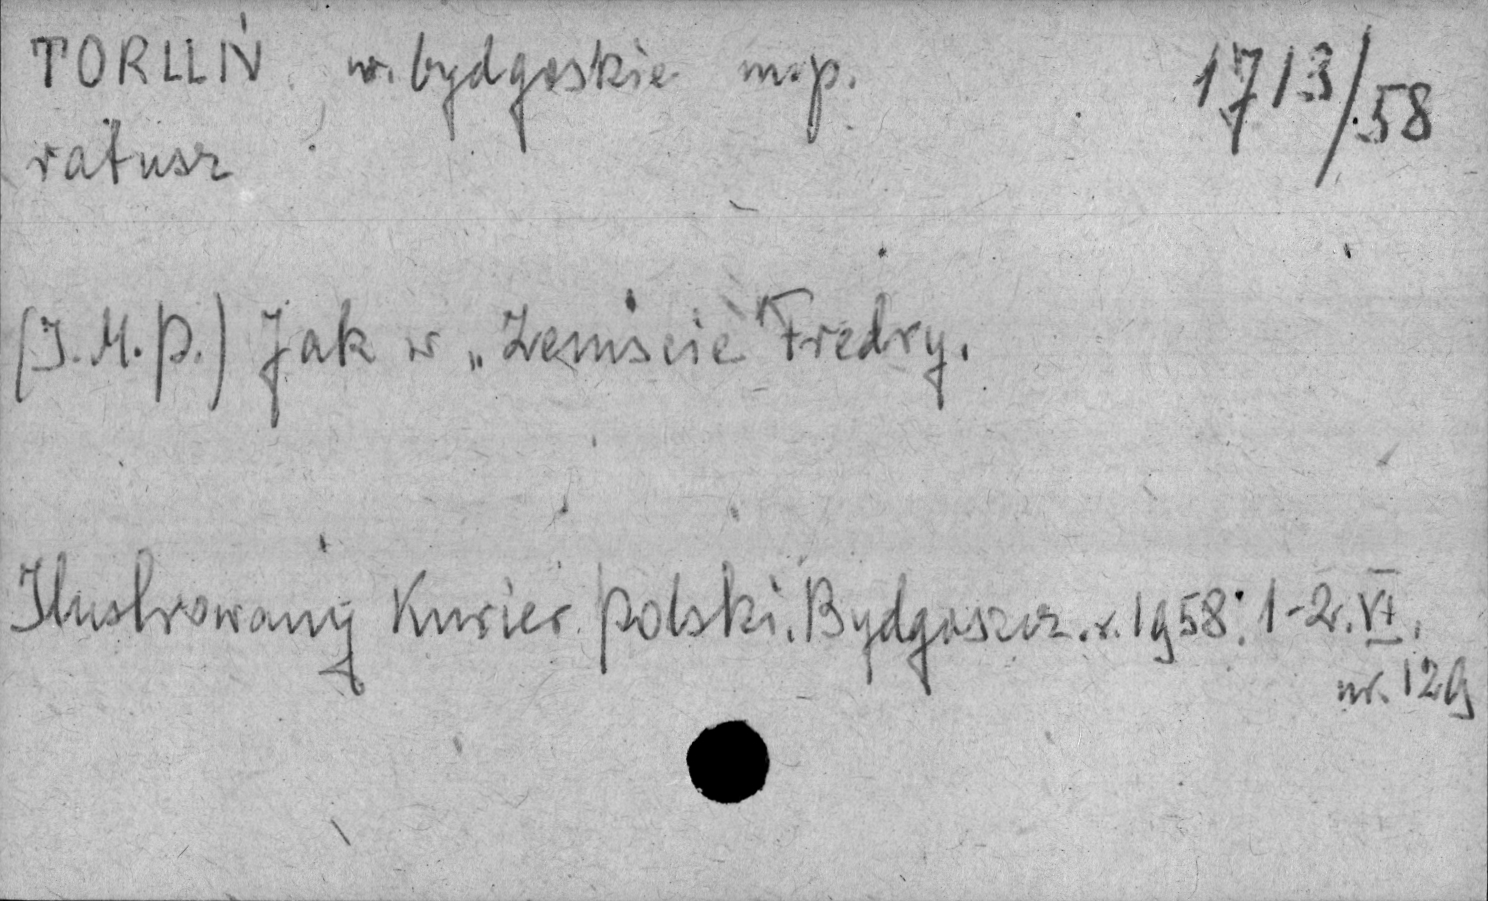 TORUŃ w. bydgoskie m.p. 1713/58
ratusz
(J.M.P.) Jak w „Zemście" Fredry.
Ilustrowany Kurier Polski. Bydgoszcz. r. 1958: 1-2. VI.
nr. 129